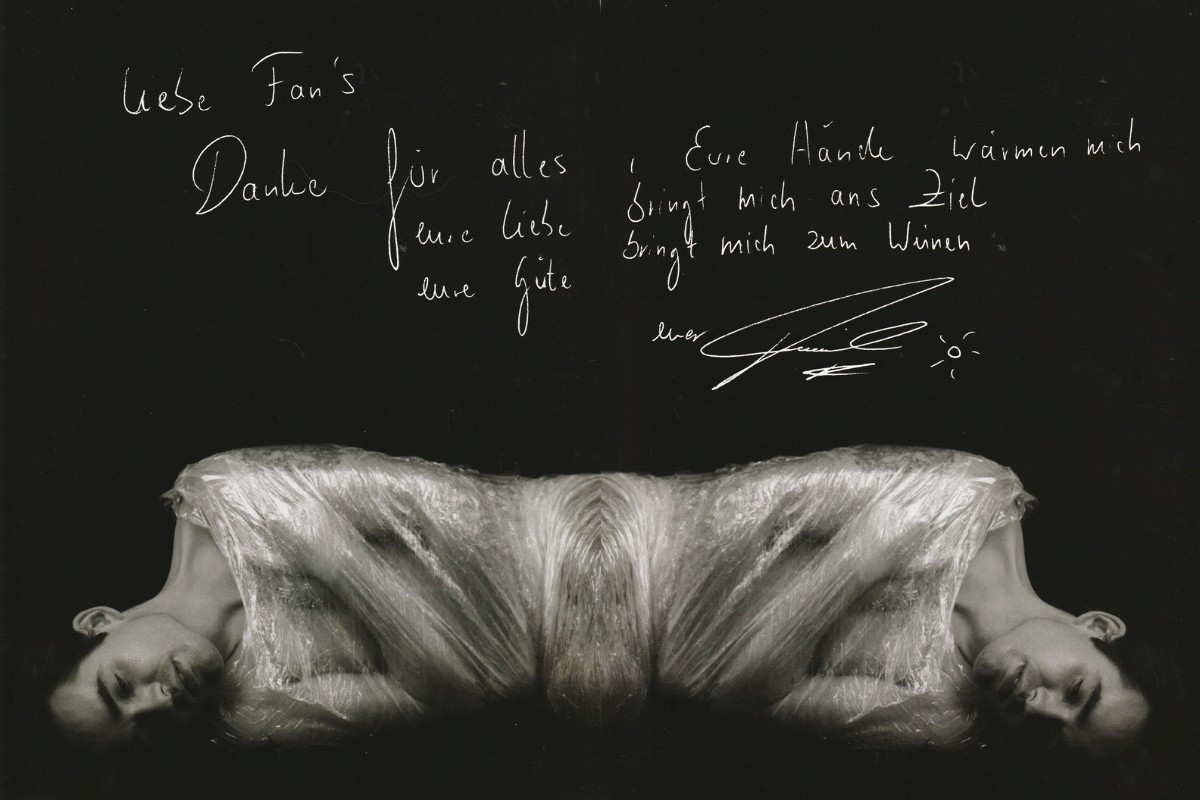 liebe Fan's
Danke für alles , Eure Hände wärmen mich
eure liebe bringt mich ans Ziel
eure Güte bringt mich zum Weinen
euer